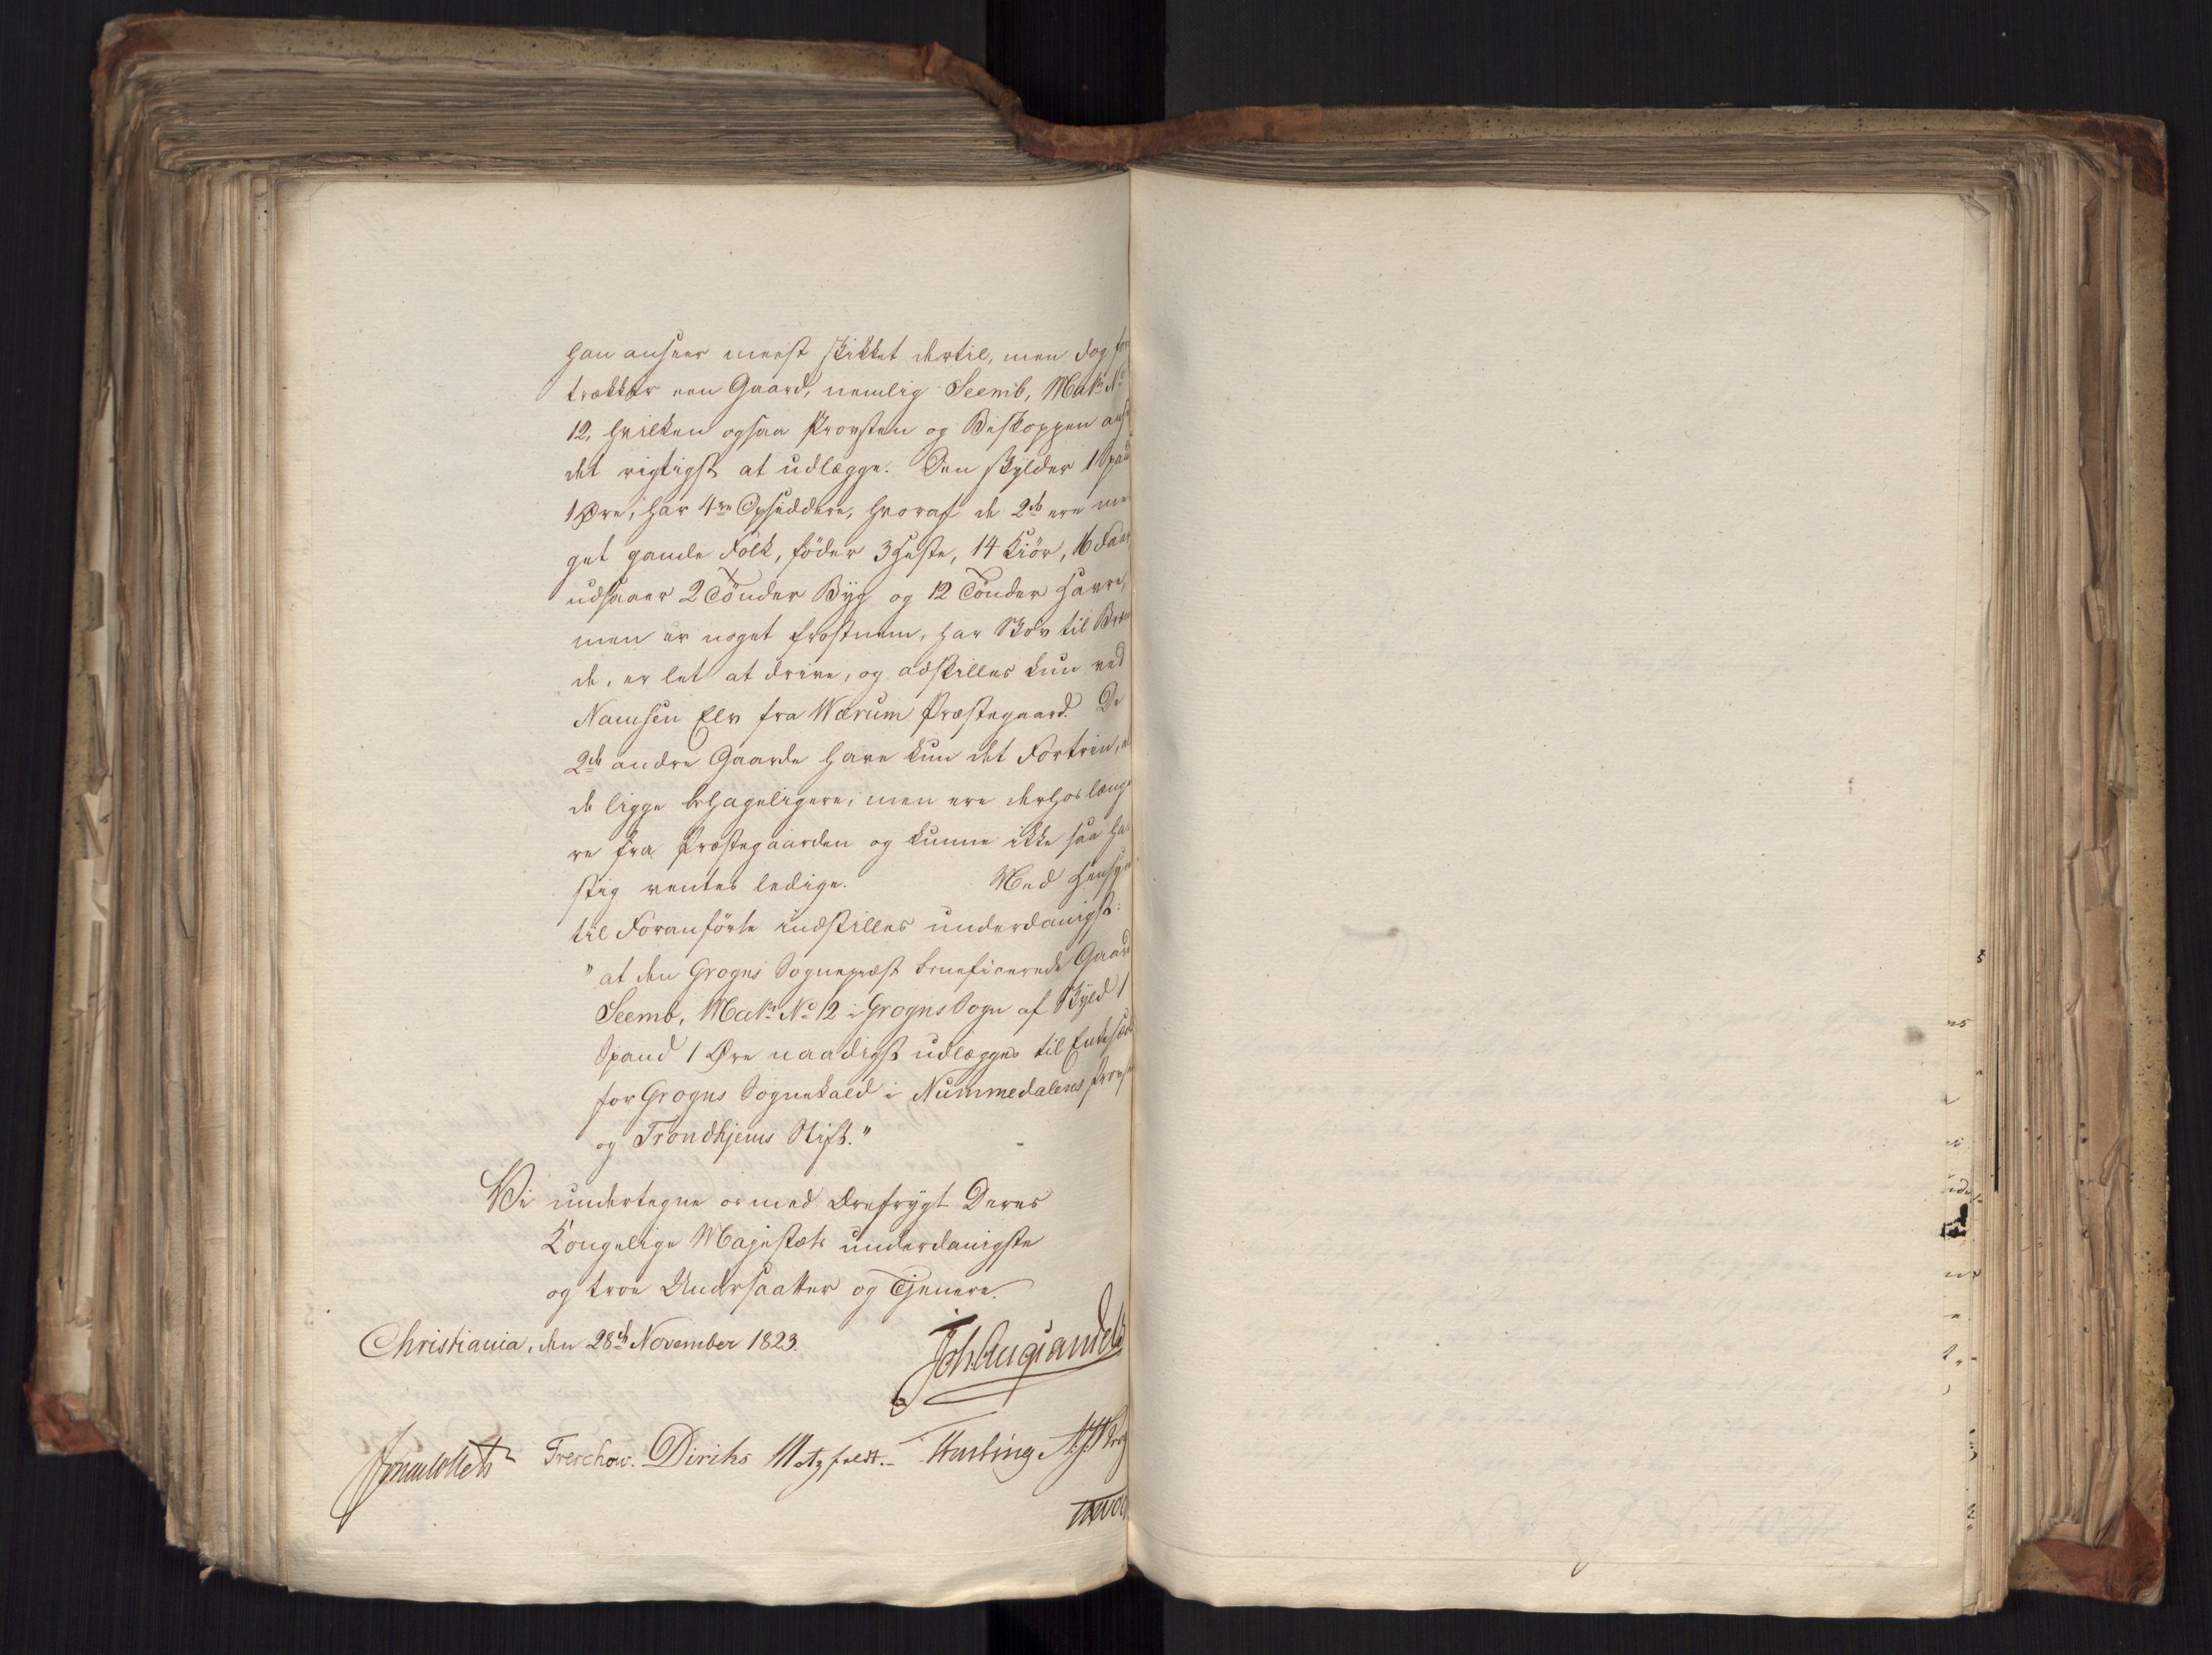 han ansees meest skikket dertil, men dog fore
trækker een Gaard, nemlig Seemb, Matr. No
12, hvilken ogsaa Provsten og Biskoppen ansee
det rigtigst at udlægge. Den skylder 1 Spand
1 Øre, har 4re Opsiddere, hvoraf de 2de ere me
get gamle Folk, föder 3 Heste, 14 Kiör, 16 Faar,
udsaaer 2 Tönder Byg og 12 Tönder Havre,
men er noget frostnem, har Skov til Bræn
de, er let at drive, og adskilles kun ved
Namsen Elv fra Værum Præstegaard. De
2de andre Gaarde have kun det Fortrin, at
de ligge behageligere, men ere derhos længe
re fra Præstegaarden og kunne ikke saa ha
stig ventes ledige. Med Hensyn
til Foranförte indstilles underdanigst:
"at den Grogns Sognepræst beneficerede Gaard
Seemb, Matr. No 12 i Grogns Sogn af Skyld 1
Spand 1 Øre naadigst udlægges til Enkesæde
for Grogns Sognekald i Nummedalens Provstie
og Trondhjems Stift."
Vi undertegne os med Ærefrygt Deres
Kongelige Majestæts underdanigste
og troe Undersaatter og Tjenere.
Christiania, den 28de November 1823.
Joh. Aug. Sandels
Jonas Collett Treschow. Diriks Motzfeldt. Fasting